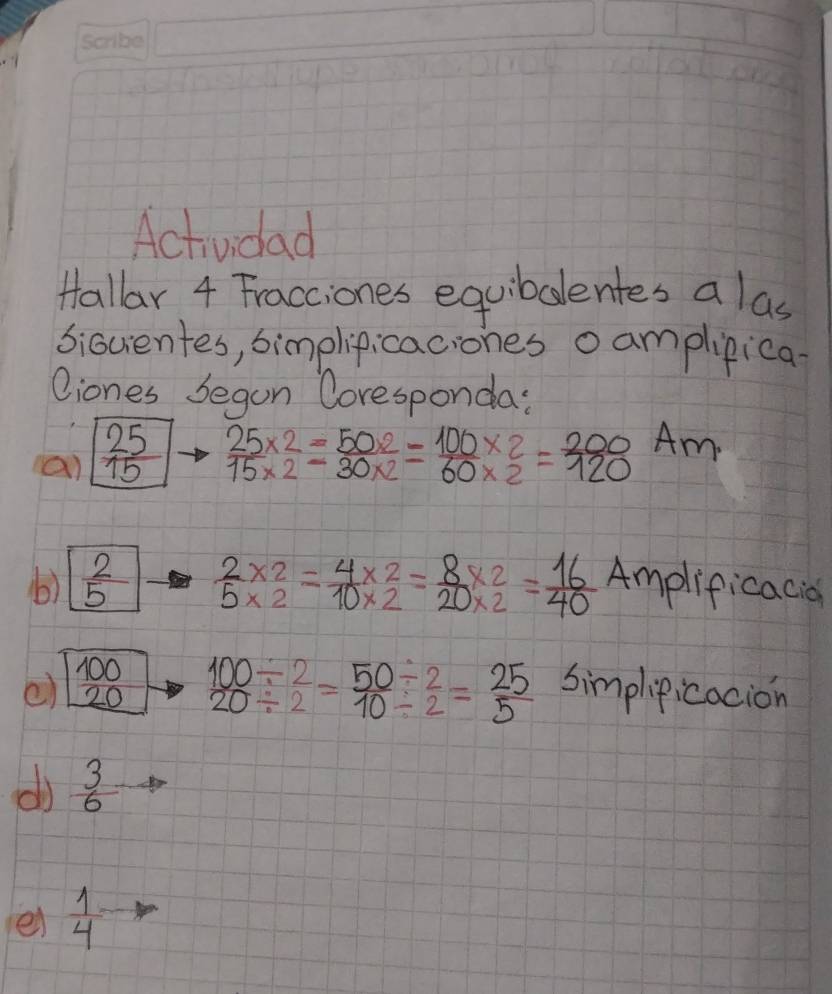 Scribe
Actividad
Hallar 4 Fracciones equibalentes a las
Siguientes, simplificaciones o amplifica-
Ciones segun Coresponda:
a) 25/15 → 25×2/15×2 = 50×2/30×2 = 100×2/60×2 = 200/120 Am.
b) 2/5 → 2×2/5×2 = 4×2/10×2 = 8×2/20×2 = 16/40 Amplificació
c) 100/20 → 100÷2/20÷2 = 50÷2/10÷2 = 25/5 Simplificación
d) 3/6 →
e) 1/4 →